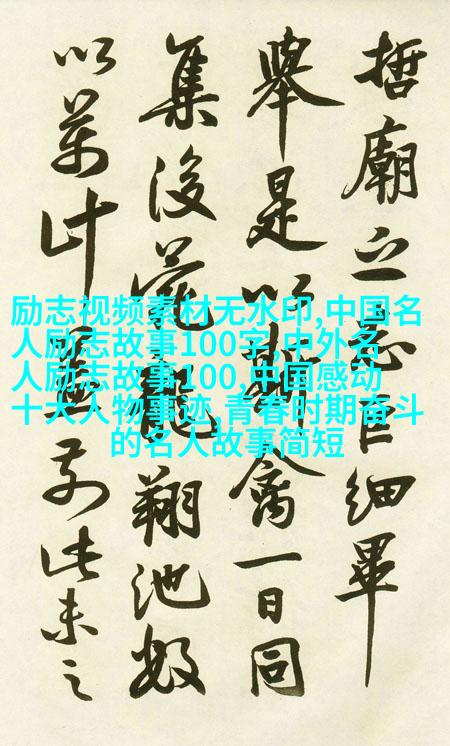 哲廟之巨細畢
舉是以斯禽一日同
集後苑龍翔池奴
以萬計前此未之
励志视频素材无水印,中国名
人励志故事100字,中外名
人励志故事100,中国感动
十大人物事迹,青春时期奋斗
的名人故事简短